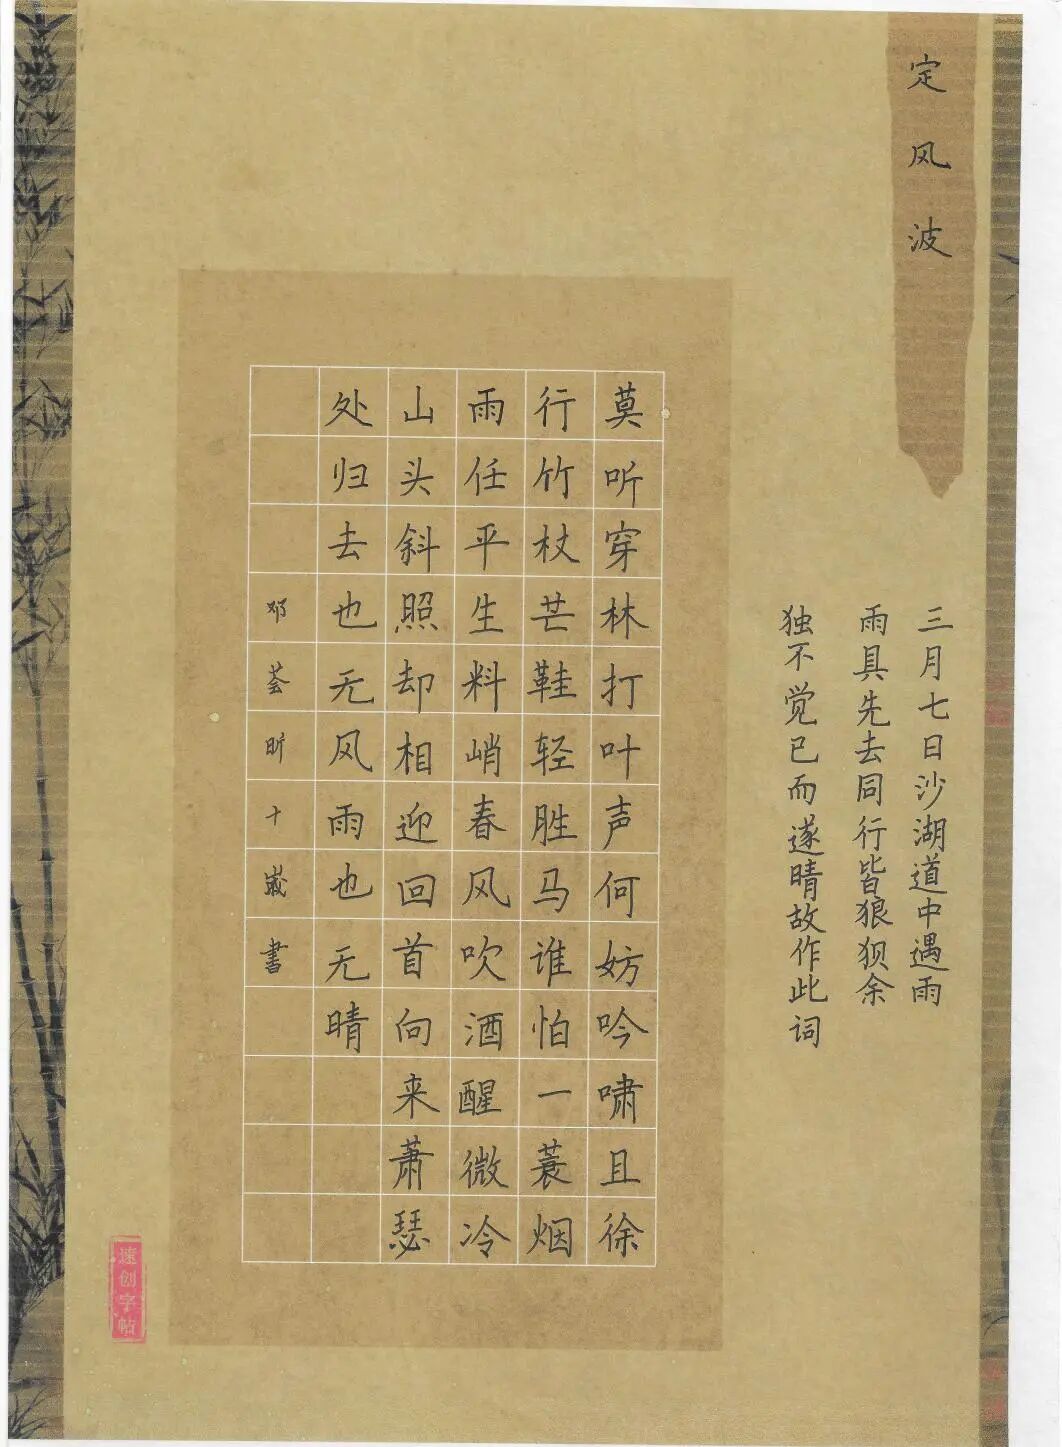 定风波
三月七日沙湖道中遇雨
雨具先去同行皆狼狈余
独不觉已而遂晴故作此词
莫听穿林打叶声何妨吟啸且徐
行竹杖芒鞋轻胜马谁怕一蓑烟
雨任平生料峭春风吹酒醒微冷
山头斜照却相迎回首向来萧瑟
处归去也无风雨也无晴
邓荟昕十嵗書
速创字帖